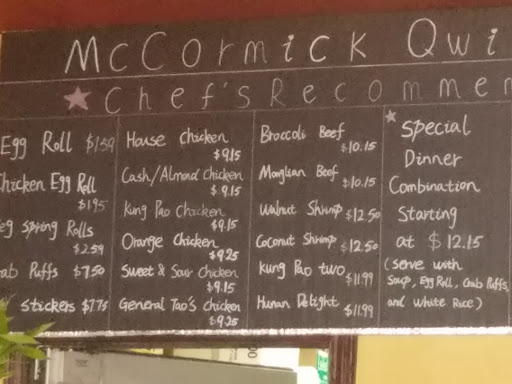 McCormick Qwi
Chef's Recommen
Egg Roll $1.59
Chicken Egg Roll
$1.95
eg Spring Rolls
$2.59
ab Puffs $7.50
stickers $7.75
House Chicken
$9.15
Cash/Almond Chicken
$9.15
Kung Pao Chicken
$9.15
Orange Chicken
$9.25
Sweet & Sour Chicken
$9.15
General Tao's Chicken
$9.25
Broccoli Beef
$10.15
Monglian Beef
$10.15
Walnut Shrimp $12.50
Coconut Shrimp $12.50
Kung Pao two
$11.99
Hunan Delight
$11.99
Special
Dinner
Combination
Starting
at $12.15
(serve with
Soup, Egg Roll, Crab Puffs,
and White Rice)